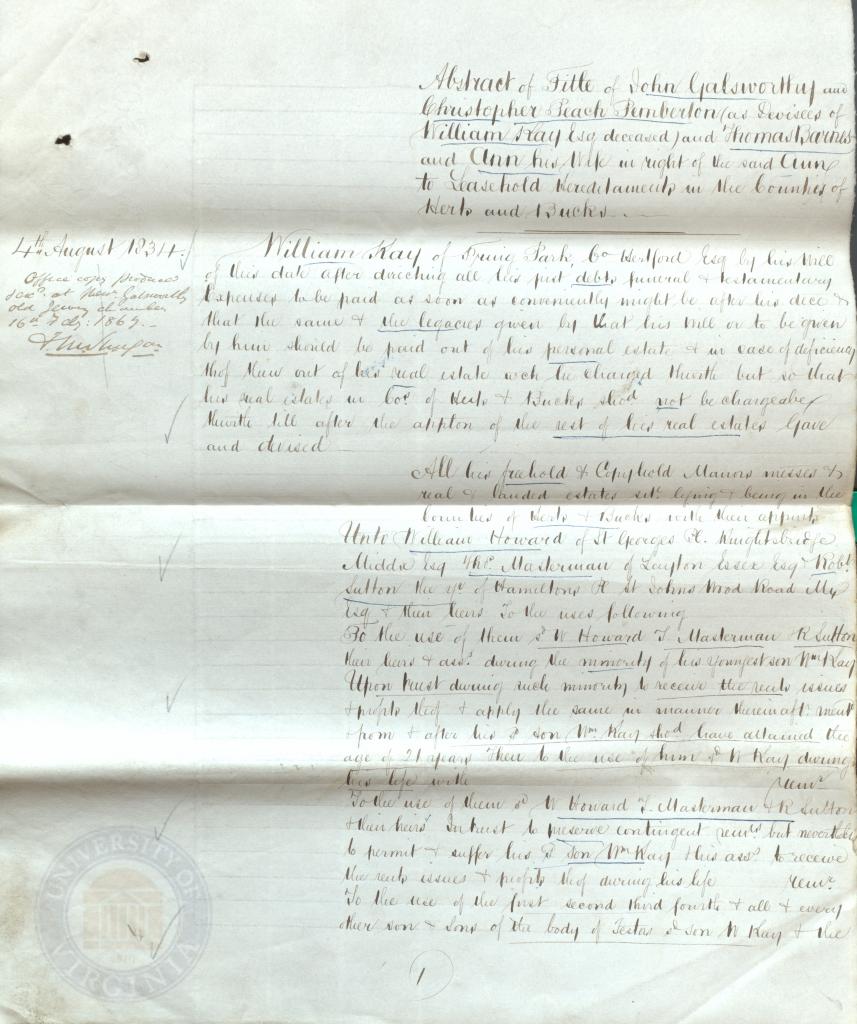 Abstract of Title of John Galsworthy and
Christopher Peach Pemberton (as Devisees of
William Kay Esq deceased) and Thomas Barnes
and Ann his Wife in right of the said Ann
to Leasehold Hereditaments in the Counties of
Herts and Bucks
4th August 1834
Office copy produced
at Messrs Galsworthy
old Jewry chamber
16th Feby: 1869
William Kay of Tring Park Co Hertford Esq by his Will
of this date after directing all his just debts funeral & testamentary
Expenses to be paid as soon as conveniently might be after his dece &
that the same & the legacies given by that his will or to be given
by him should be paid out of his personal estate & in case of deficiency
thof then out of his real estate wch he charged thwth but so that
his real estates in Cos of Herts & Bucks shod not be chargeable
thwth till after the appton of the rest of his real estates Gave
and devised
All his freehold & Copyhold Manors messes &
real & landed estates sit. lying & being in the
Counties of Herts & Bucks with their appurts
Unto William Howard of St Georges Pl. Knightsbridge
Middx Esq Thos. Masterman of Layton Essex Esq & Robt.
Sutton the yr of Hamilton Pl St Johns Wood Road Mx
Esq & their heirs To the uses following
To the use of them sd W Howard T. Masterman & R Sutton
their heirs & asss during the minority of his youngest son Wm Kay
Upon trust during such minority to receive the rents issues
& profits thof & apply the same in manner thereinaft: mentd
& from & after his sd son Wm Kay shod have attained the
age of 21 years Then to the use of him sd W Kay during
his life with remr
To the use of them sd W Howard T. Masterman & R Sutton
& their heirs In trust to preserve contingent remrs but nevertheless
to permit & suffer his sd son Wm Kay & his asss to receive
the rents issues & profits thof during his life remr
To the use of the first second third fourth & all & every
other son & sons of the body of Testas sd son W Kay & the
1
UNIVERSITY OF VIRGINIA
1819